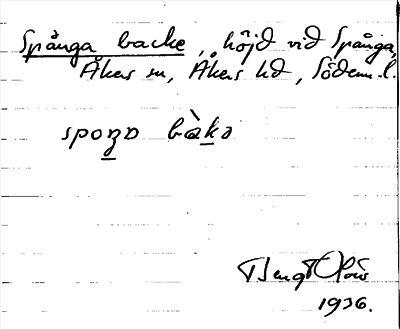 Spånga backe, höjd vid Spånga,
Åkers sn, Åkers hd, Söderm. l.
spoŋa bàka
Bengt Olsson
1936.